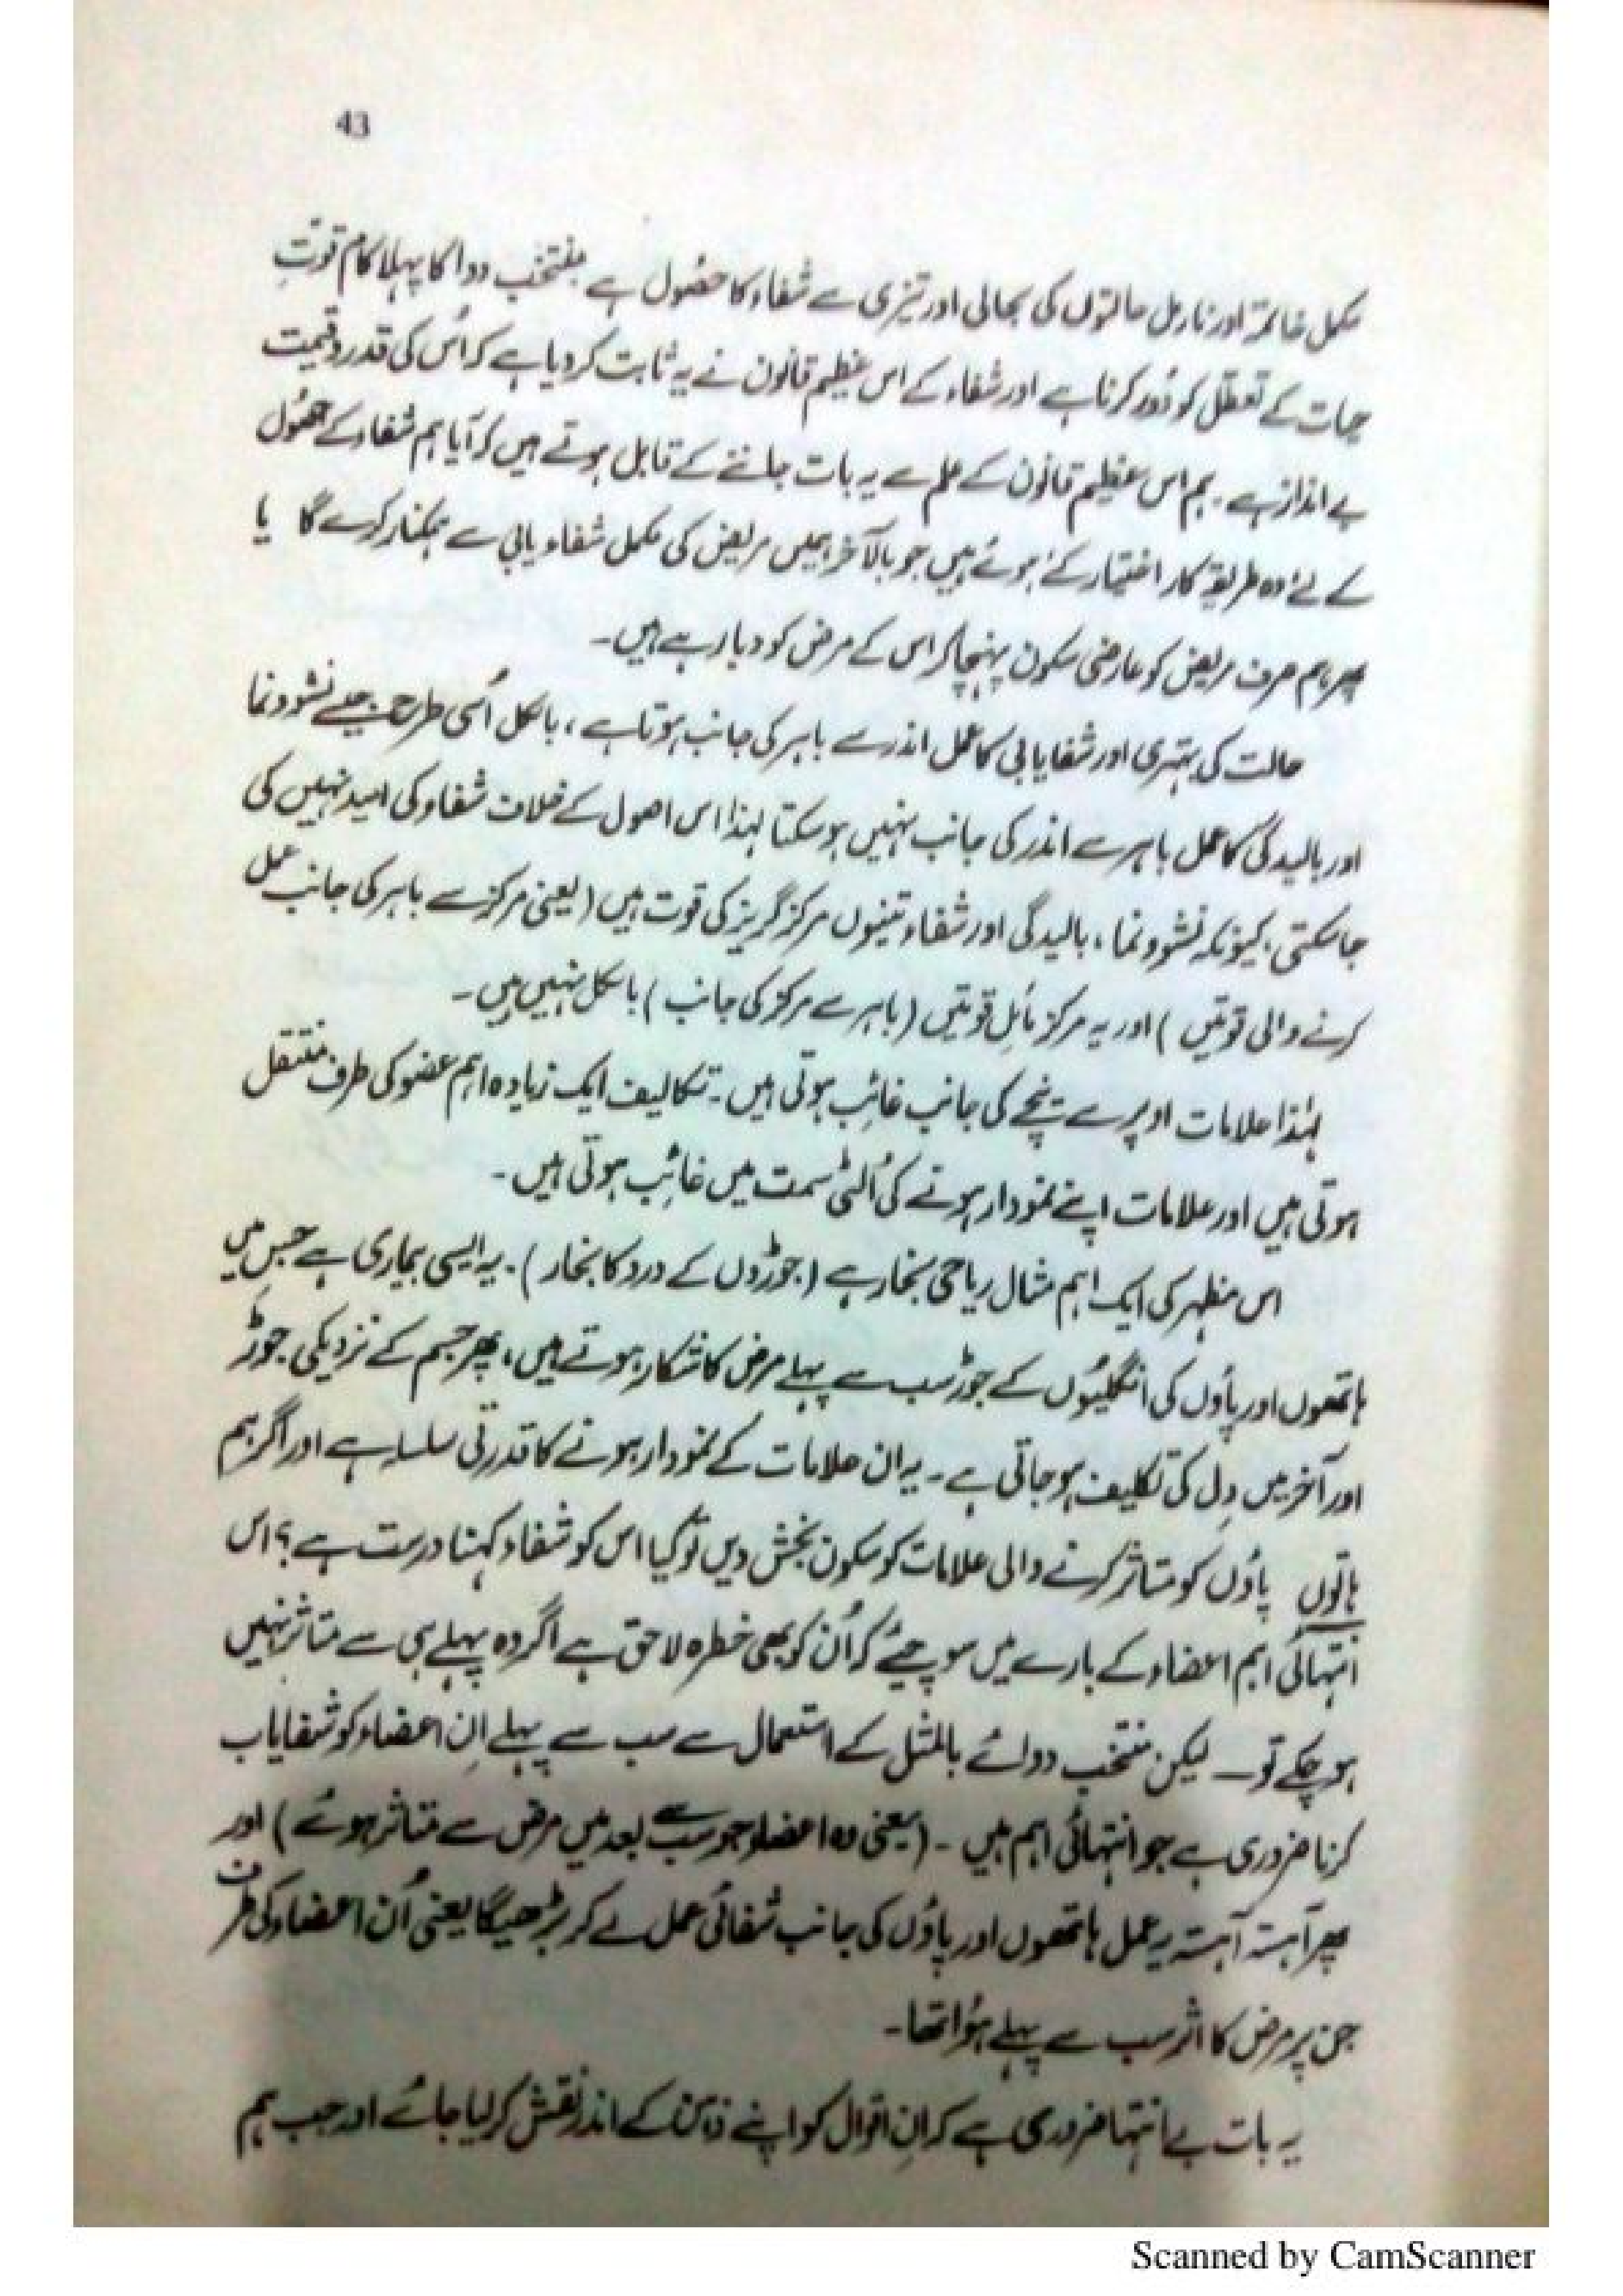 43
مکمل خاتمہ اور نارمل حالتوں کی بحالی اور تیزی سے شفاء کا حصُول ہے منتخب دوا کا پہلا کام قوتِ
حیات کے تعطل کو دُور کرنا ہے اور شفاء کے اس عظیم قانون نے یہ ثابت کر دیا ہے کہ اُس کی قدر و قیمت
بے انداز ہے۔ ہم اس عظیم قانون کے علم سے یہ بات جاننے کے قابل ہوتے ہیں کہ آیا ہم شفاء کے حصُول
کے لئے وہ طریقہ کار اختیار کئے ہوئے ہیں جو بالآخر ہمیں مریض کی مکمل شفاء یابی سے ہمکنار کرے گا یا
پھر ہم صرف مریض کو عارضی سکون پہنچا کر اس کے مرض کو دبا رہے ہیں۔
حالت کی بہتری اور شفایابی کا عمل اندر سے باہر کی جانب ہوتا ہے، بالکل اُسی طرح جیسے نشوونما
اور بالیدگی کا عمل باہر سے اندر کی جانب نہیں ہو سکتا لہٰذا اس اصول کے خلاف شفاء کی امید نہیں کی
جا سکتی، کیونکہ نشوونما، بالیدگی اور شفاء تینوں مرکز گریز کی قوت ہیں (یعنی مرکز سے باہر کی جانب عمل
کرنے والی قوتیں) اور یہ مرکز مائل قوتیں (باہر سے مرکز کی جانب) بالکل نہیں ہیں۔
لہٰذا علامات اوپر سے نیچے کی جانب غائب ہوتی ہیں۔ تکالیف ایک زیادہ اہم عضو کی طرف منتقل
ہوتی ہیں اور علامات اپنے نمودار ہونے کی اُلٹی سمت میں غائب ہوتی ہیں۔
اس مظہر کی ایک اہم مثال ریاحی بخار ہے (جوڑوں کے درد کا بخار)۔ یہ ایسی بیماری ہے جس میں
ہاتھوں اور پاؤں کی انگلیوں کے جوڑ سب سے پہلے مرض کا شکار ہوتے ہیں، پھر جسم کے نزدیکی جوڑ
اور آخر میں دِل کی تکلیف ہو جاتی ہے۔ یہ ان علامات کے نمودار ہونے کا قدرتی سلسلہ ہے اور اگر ہم
ہاتوں پاؤں کو متاثر کرنے والی علامات کو سکون بخش دیں تو کیا اس کو شفاء کہنا درست ہے؟ اس
انتہائی اہم اعضاء کے بارے میں سوچیئے کہ اُن کو بھی خطرہ لاحق ہے اگر وہ پہلے ہی سے متاثر نہیں
ہو چکے تو۔ لیکن منتخب دوائے بالمثل کے استعمال سے سب سے پہلے اِن اعضاء کو شفایاب
کرنا ضروری ہے جو انتہائی اہم ہیں۔ (یعنی وہ اعضاء جو سب سے بعد میں مرض سے متاثر ہوئے) اور
پھر آہستہ آہستہ یہ عمل ہاتھوں اور پاؤں کی جانب شفائی عمل لے کر بڑھیگا یعنی اُن اعضاء کی طرف
جن پر مرض کا اثر سب سے پہلے ہُوا تھا۔
یہ بات بے انتہا ضروری ہے کہ اِن اقوال کو اپنے ذہن کے اندر نقش کر لیا جائے اور جب ہم
Scanned by CamScanner